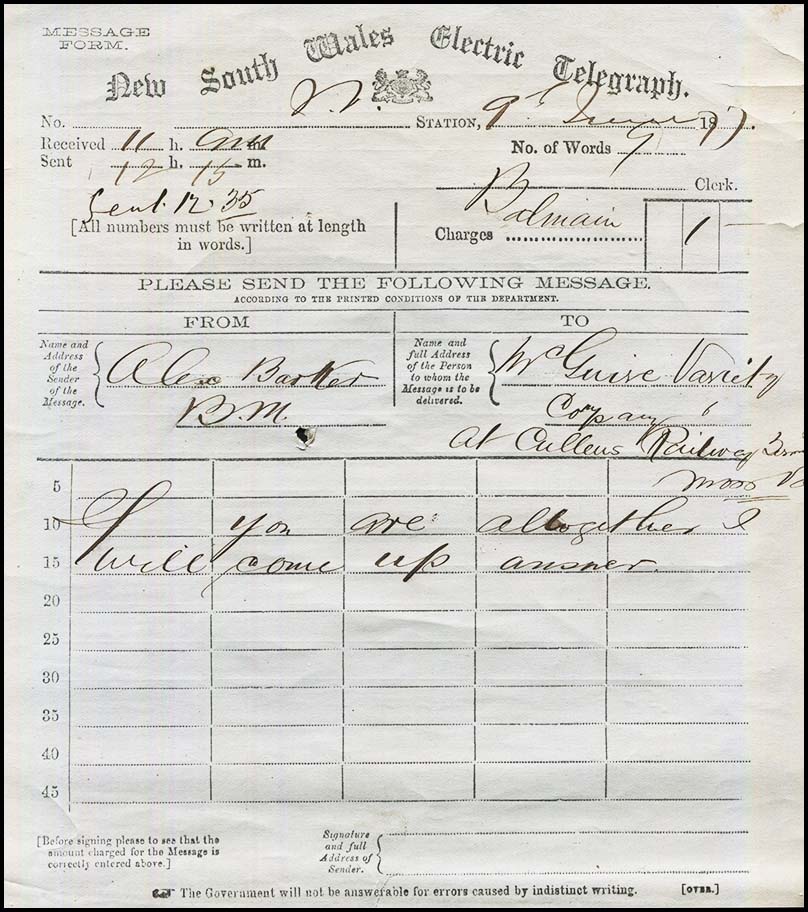 MESSAGE
FORM.
New South Wales Electric Telegraph.
No. STATION, 9 June 1877.
Received 11 h. m.
Sent 12 h. 15 m.
No. of Words 9
Sent 12.35
Clerk.
[All numbers must be written at length
in words.]
Balmain
Charges 1
PLEASE SEND THE FOLLOWING MESSAGE.
ACCORDING TO THE PRINTED CONDITIONS OF THE DEPARTMENT.
FROM
TO
Name and
Address
of the
Sender
of the
Message.
Alex Barker
B.M.
Name and
full Address
of the Person
to whom the
Message is to be
delivered.
McGuire Variety
Company
at Cullens Railway
Moss
5
10 If you are altogether I
15 will come up answer.
20
25
30
35
40
45
[Before signing please to see that the
amount charged for the Message is
correctly entered above.]
Signature
and full
Address of
Sender.
The Government will not be answerable for errors caused by indistinct writing. [OVER.]